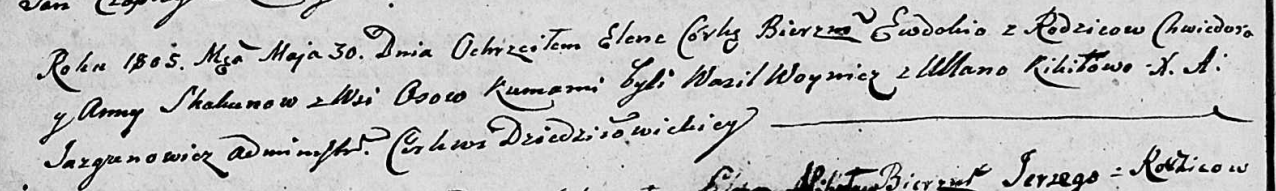 Jan
Roku 1805. Mca Maja 30. Dnia Ochrzciłem Elenę Córkę Bierzm Ewdokio z Rodzicow Chwiedora
y Anny Skakunow z Wsi Osow Kumami byli Wasil Woynicz z Ullano Kikiłowo. X. A:
Jazgunowicz administr. Cerkwi Dziedziłowickiey
Bierzm Jerzego = Rodzicow